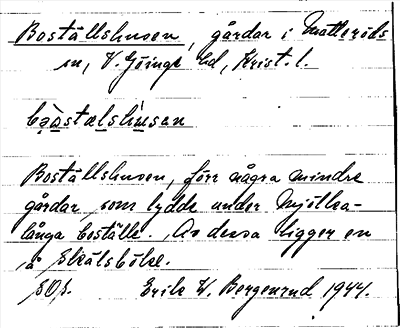 Boställshusen, gårdar i Matteröds
sn, V. Göinge hd, Krist. l.
Boställshusen, förr några mindre
gårdar, som lydde under Mjölka-
långa boställe. Av dessa ligger en
å Skälsböke.
SOS. Erik W. Bergenrud 1944.